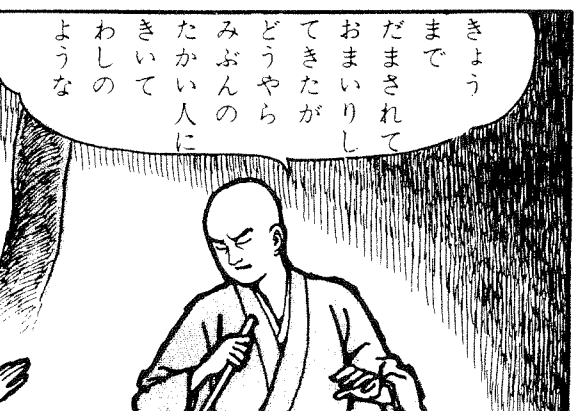 きょう
まで
だまされて
おまいりし
てきたが
どうやら
みぶんの
たかい人に
きいて
わしの
ような